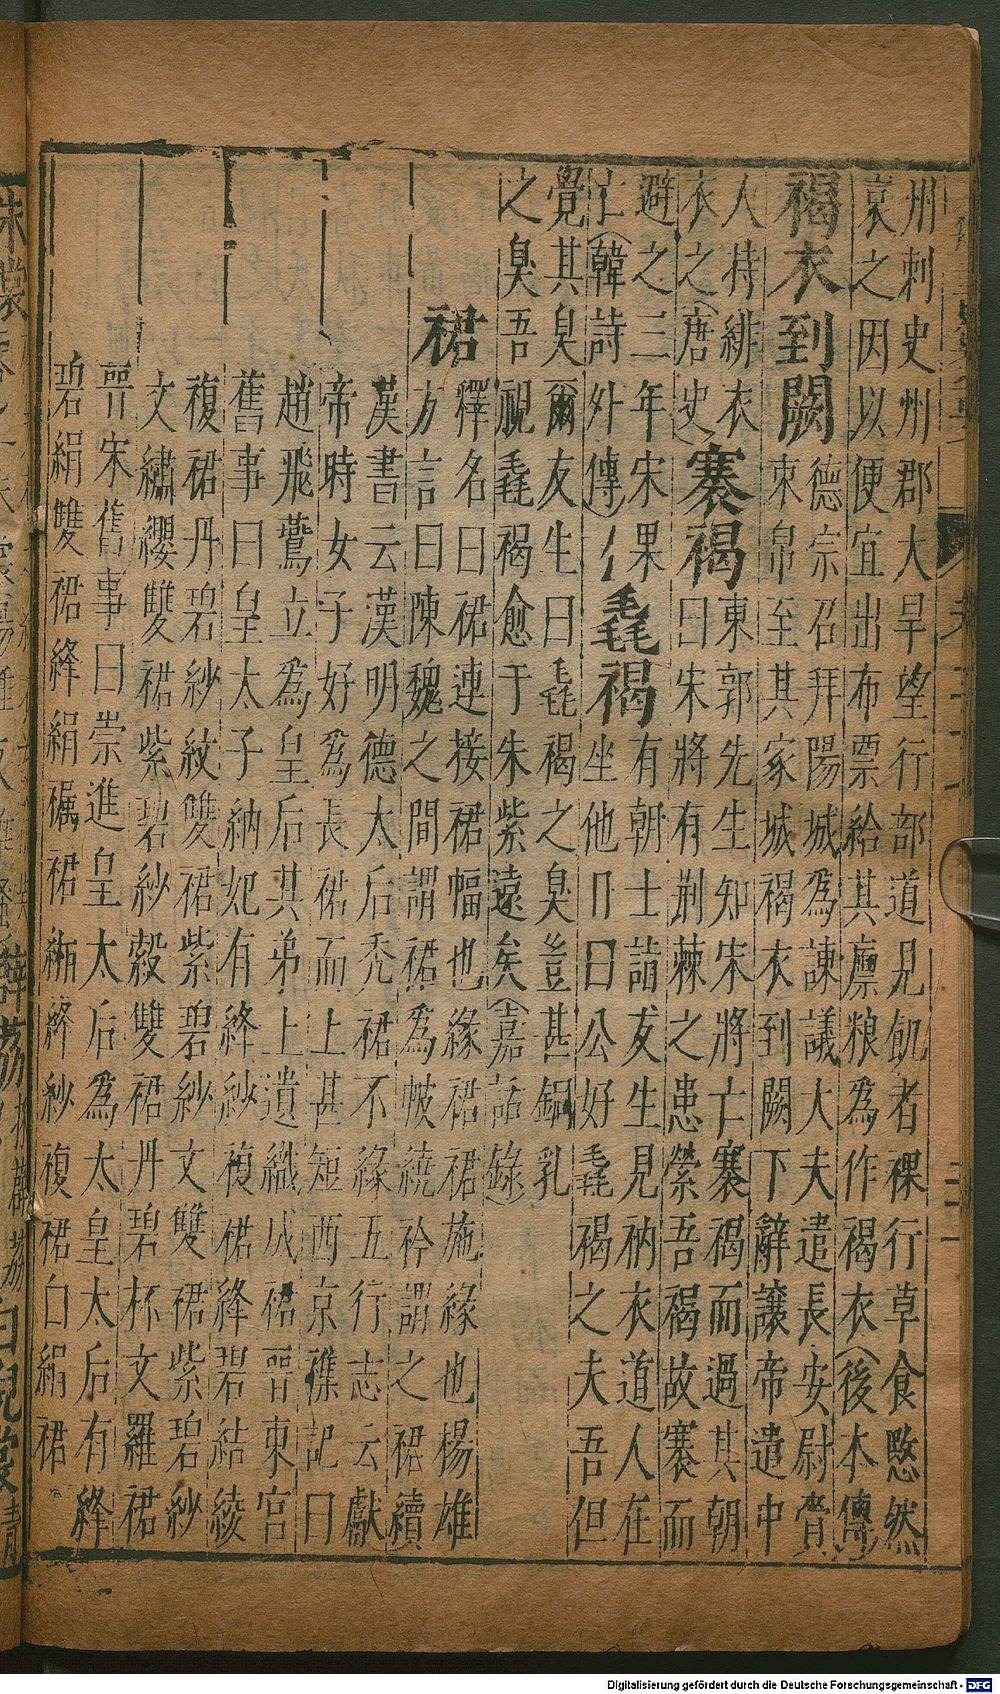 州刺史州郡大旱望行部道見飢者裸行草食愍然
哀之因以便宜出布票給其廩粮為作褐衣(後本傳)
褐衣到闕
德宗召拜陽城為諫議大夫遣長安尉賫
束帛至其家城褐衣到闕下辭讓帝遣中
人持緋衣
衣之(唐史)
褰褐
東郭先生知宋將亡褰褐而過其朝
曰宋將有荊棘之患縈吾褐故褰而
避之三年宋果
亡(韓詩外傳)
毳褐
有朝士詣友生見衲衣道人在
坐他日曰公好毳褐之夫吾但
覺其臭爾友生曰毳褐之臭豈甚銅乳
之臭吾視毳褐愈于朱紫遠矣(嘉話錄)
裙
釋名曰裙連接裙幅也緣裙裙施緣也楊雄
方言曰陳魏之間謂裙為帔繞衿謂之裙續
漢書云漢明德太后禿裙不緣五行志云獻
帝時女子好為長裙而上甚短西京襍記曰
趙飛鷰立為皇后其弟上遺織成裙晉東宮
舊事曰皇太子納妃有絳紗複裙絳碧結綾
複裙丹碧紗紋雙裙紫碧紗文雙裙紫碧紗
文繡纓雙裙紫碧紗縠雙裙丹碧杯文羅裙
晉宋舊事曰崇進皇太后為太皇太后有絳
碧絹雙裙絳絹裙緗絳紗複裙白絹裙
Digitalisierung gefördert durch die Deutsche Forschungsgemeinschaft - DFG